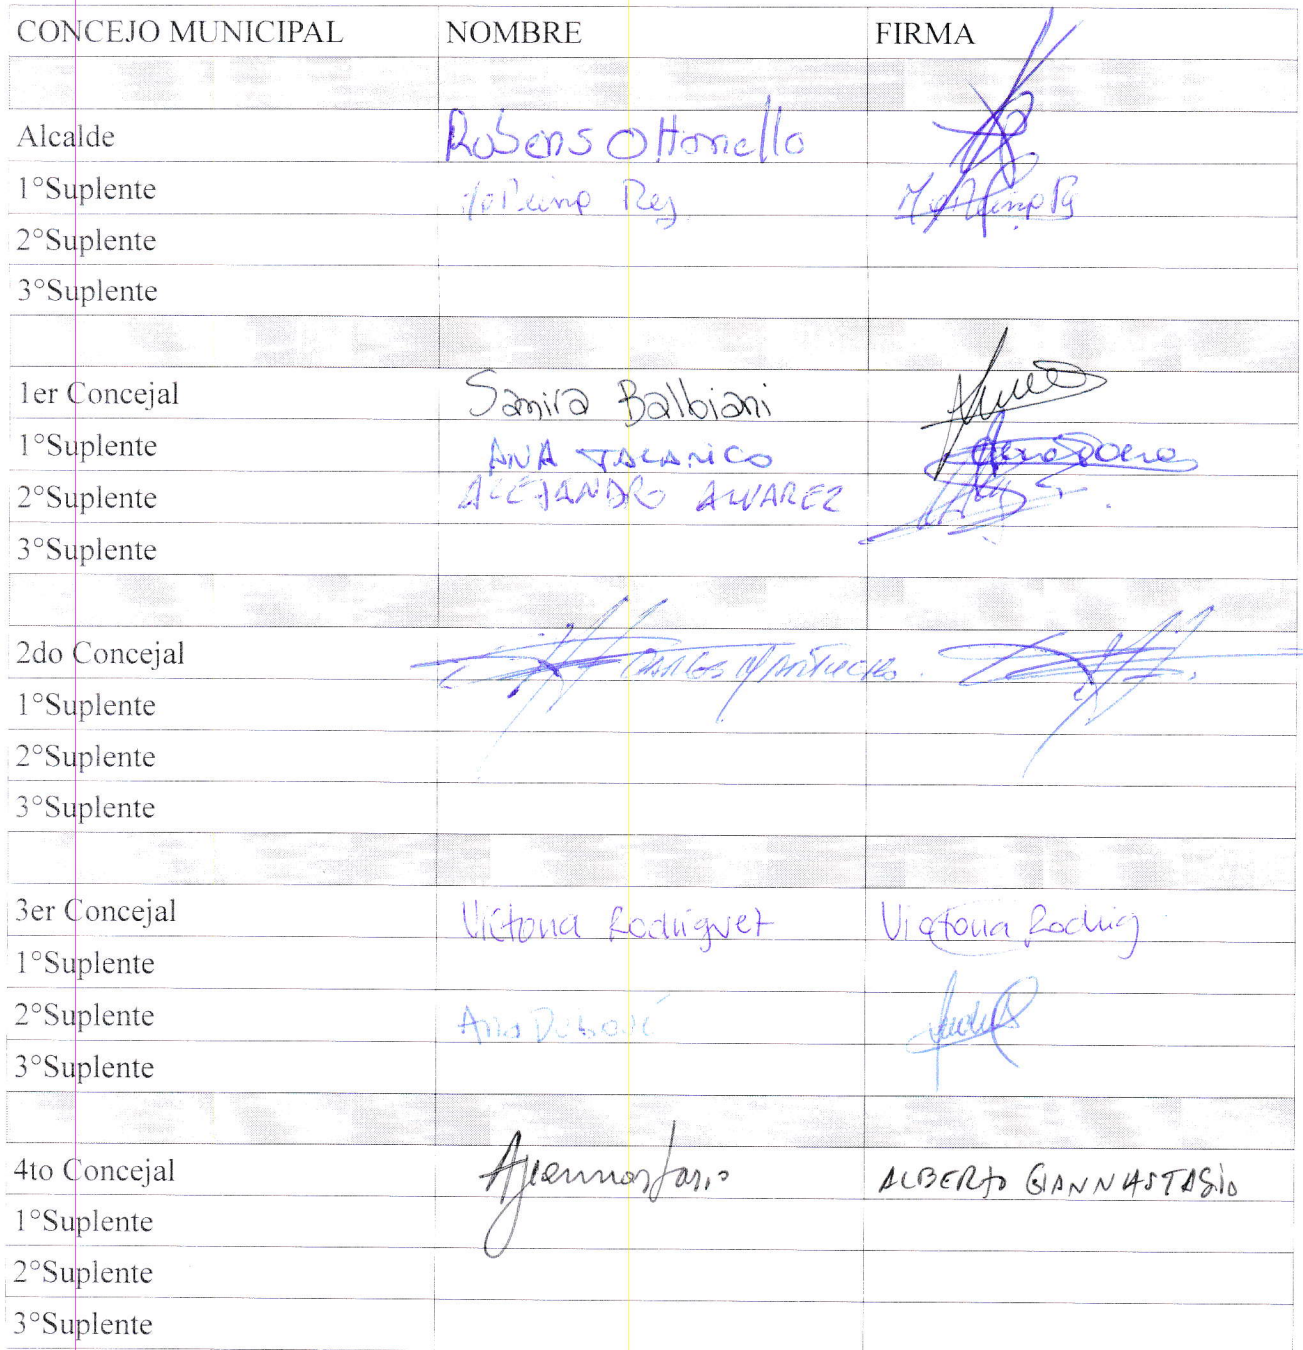 CONCEJO MUNICIPAL NOMBRE FIRMA
Alcalde Rubens Ottonello
1°Suplente
2°Suplente
3°Suplente
1er Concejal Samira Balbiani
1°Suplente ANA TALARICO
2°Suplente ALEJANDRO ALVAREZ
3°Suplente
2do Concejal CARLOS
1°Suplente
2°Suplente
3°Suplente
3er Concejal Victoria Rodriguez Victoria Rodrig
1°Suplente
2°Suplente Ana
3°Suplente
4to Concejal ALBERTO GIANNASTASIO
1°Suplente
2°Suplente
3°Suplente